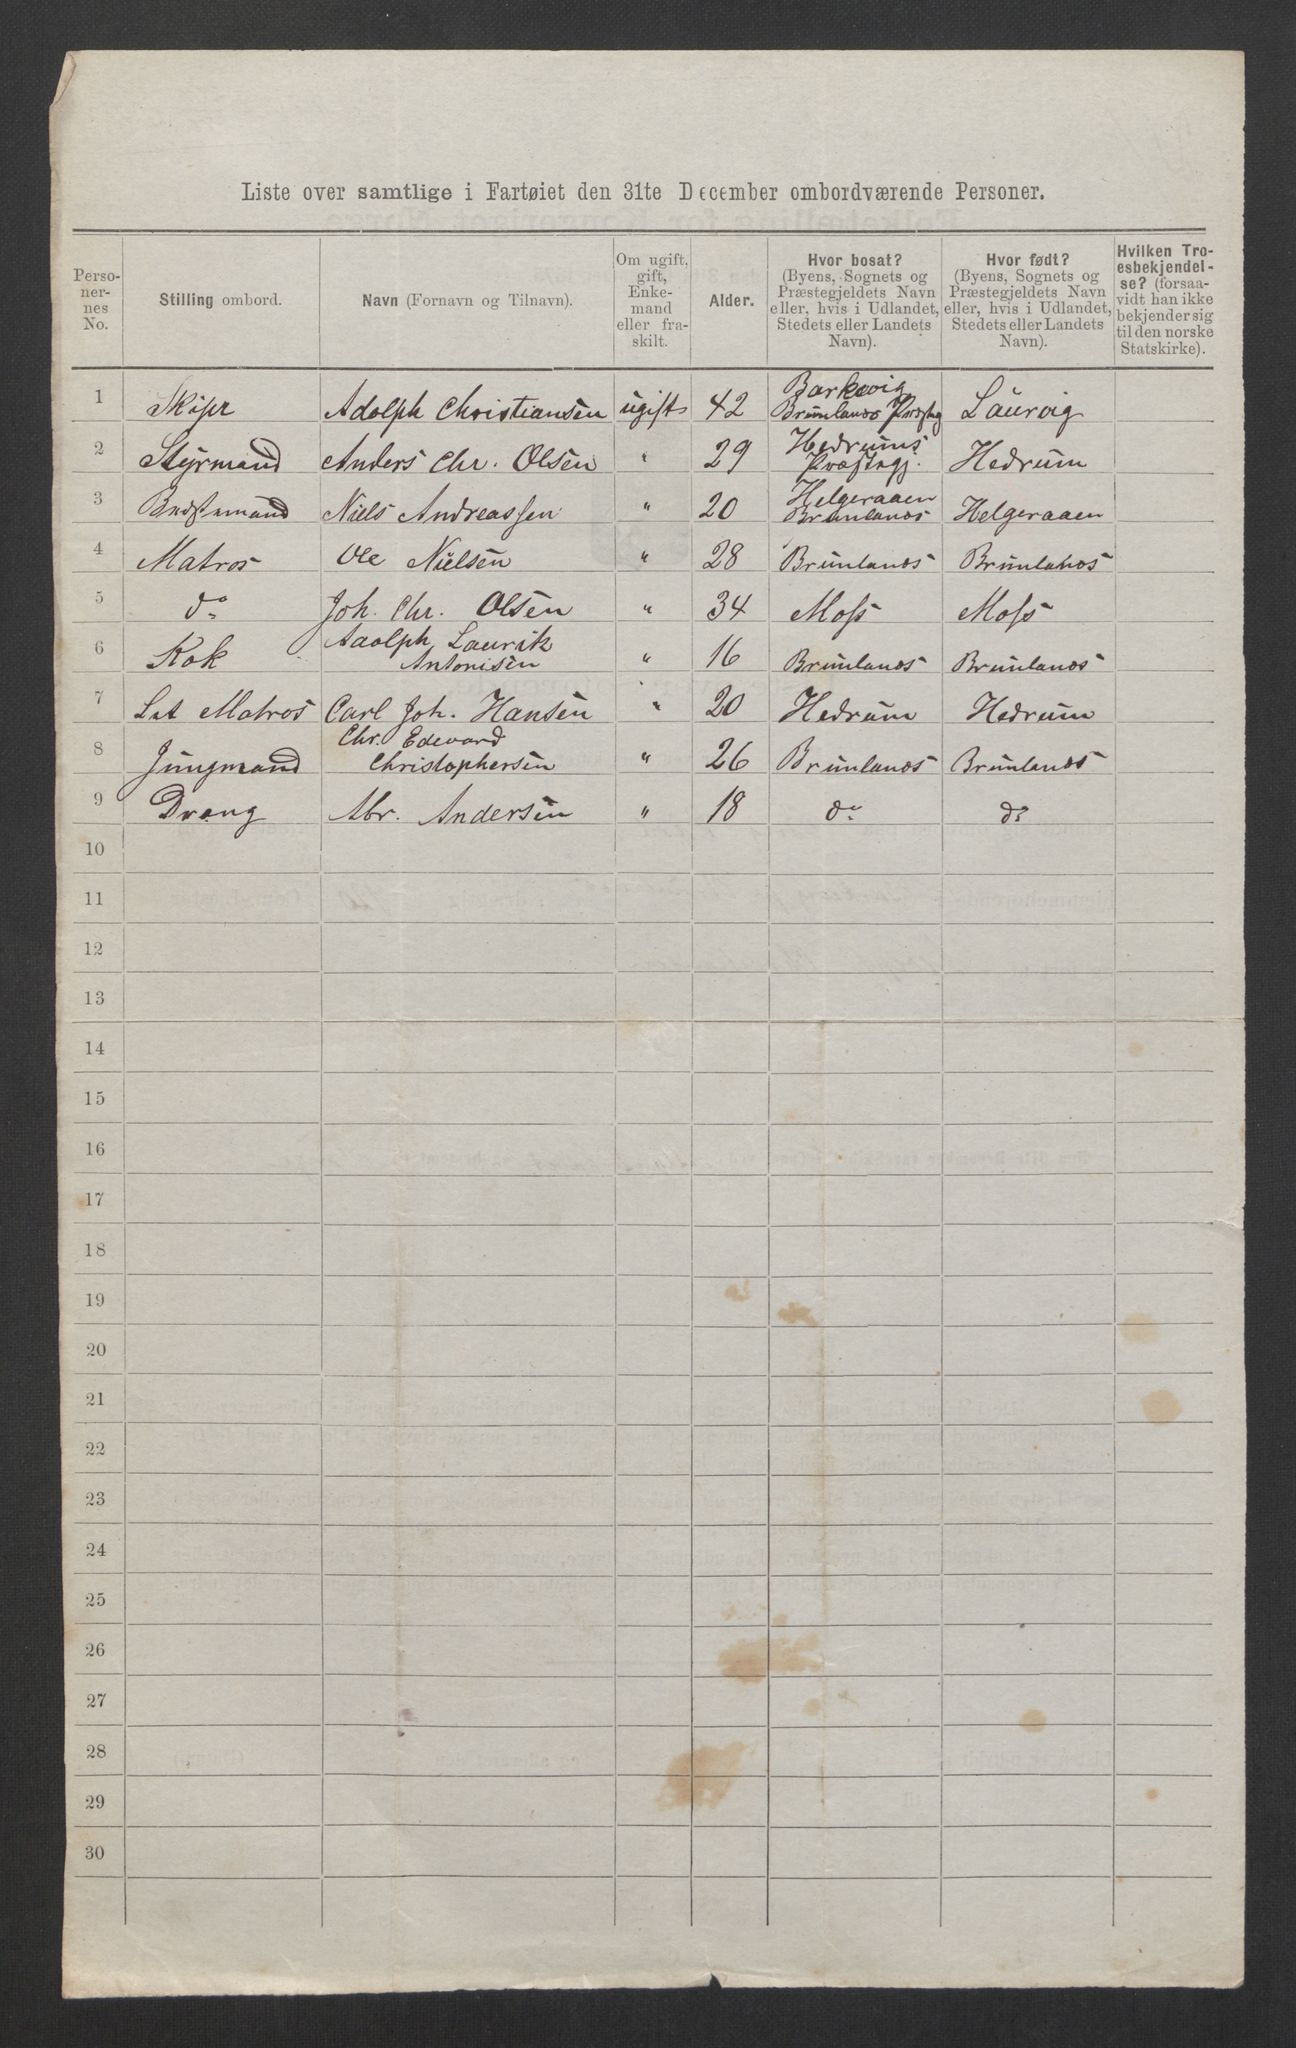 Liste over samtlige i Fartøiet den 31te December ombordværende Personer.
Perso-
ner-
nes
No.
Stilling ombord.
Navn (Fornavn og Tilnavn).
Om ugift,
gift,
Enke-
mand
eller fra-
skilt.
Alder.
Hvor bosat?
(Byens, Sognets og
Præstegjeldets Navn
eller, hvis i Udlandet,
Stedets eller Landets
Navn).
Hvor født?
(Byens, Sognets og
Præstegjeldets Navn
eller, hvis i Udlandet,
Stedets eller Landets
Navn).
Hvilken Tro-
esbekjendel-
se? (forsaa-
vidt han ikke
bekjender sig
til den norske
Statskirke).
Barkevig
1 Skiper Adolph Christiansen ugift 42 Brunlanos Præstg Laurvig
Hedrums
2 Styrmand Anders Chr. Olsen " 29 Præstegj. Hedrum
Helgeraaen
3 Niels Andreassen " 20 Brunlanos Helgeraaen
4 Matros Ole Nielsen " 28 Brunlanos Brunlanos
5 do Joh. Chr. Olsen " 34 Moss Moss
Adolph Laurik
6 Kok Antonisen " 16 Brunlanos Brunlanos
7 Let Matros Carl Joh. Hansen " 20 Hedrum Hedrum
Chr. Edevard
8 Jungmand Christophersen " 26 Brunlanos Brunlanos
9 Dreng Abr. Andersen " 18 do do
10
11
12
13
14
15
16
17
18
19
20
21
22
23
24
25
26
27
28
29
30